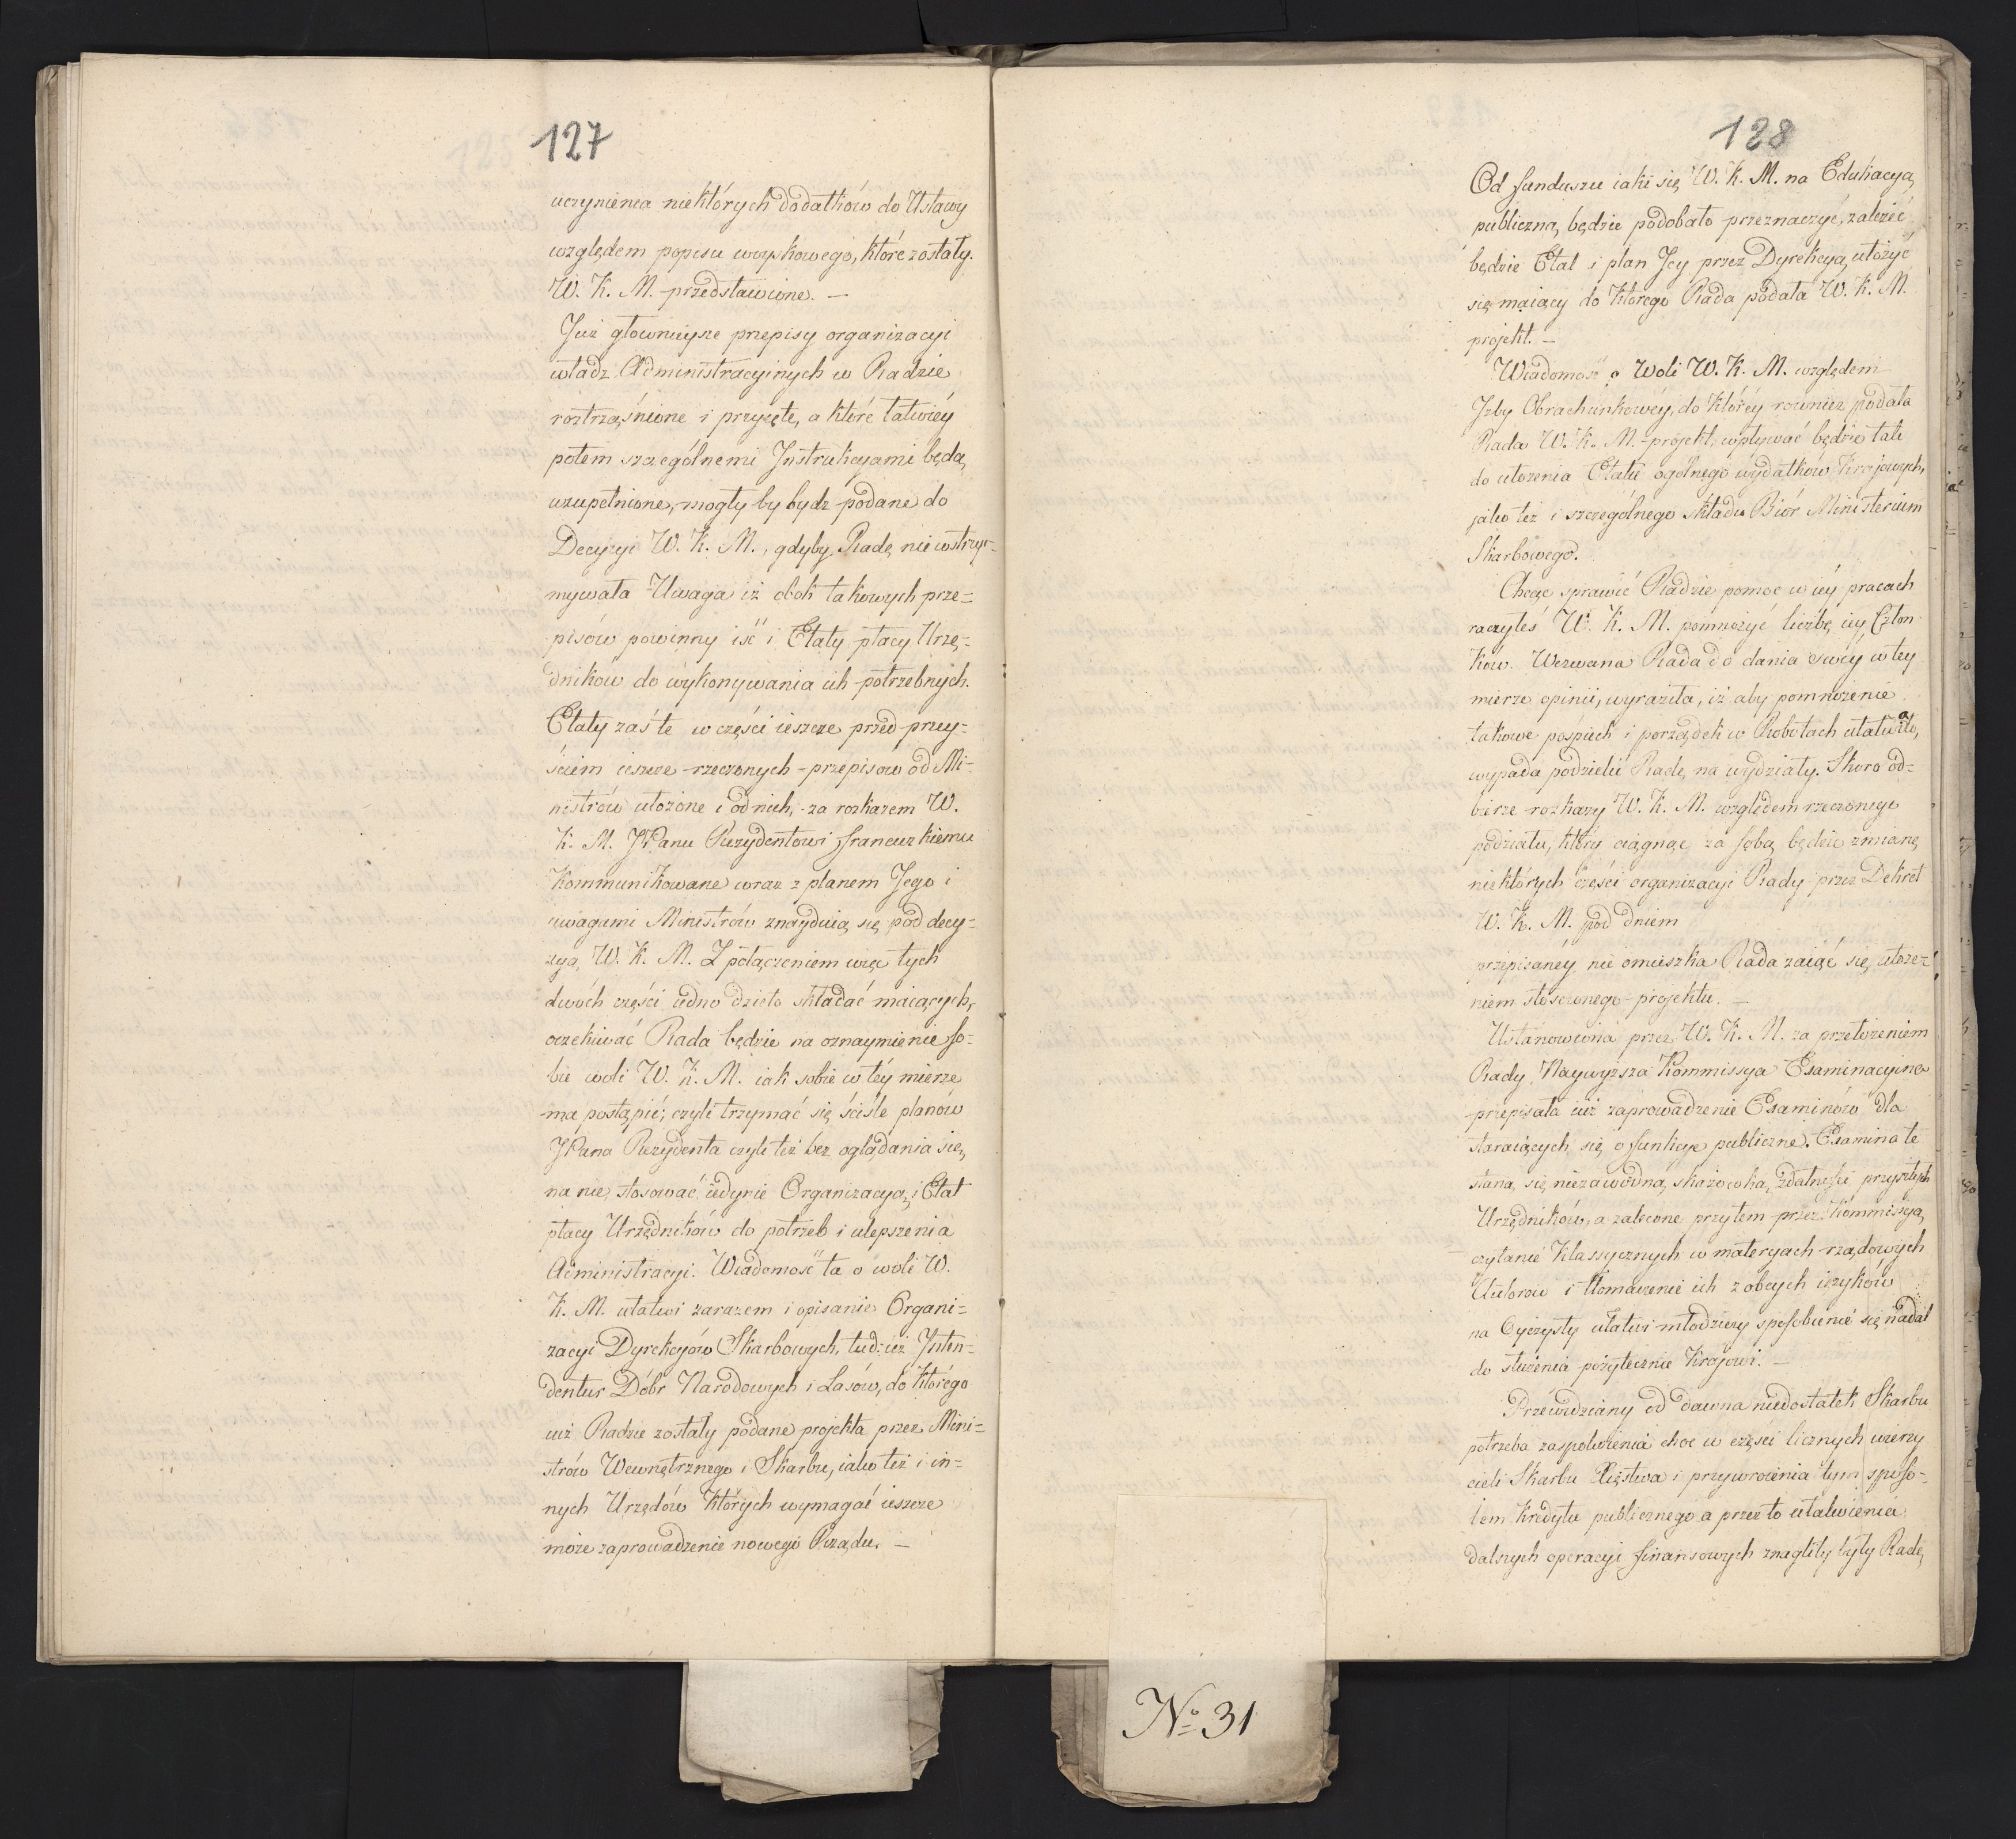 127
uczynienia niektórych dodatków do Ustawy
względem popisu woyskowego, które zostały
W. K. M. przedstawione. —
Już głownieysze przepisy organizacyi
władz Administracyinych w Radzie
roztrząśnione i przyięte, a które łatwiéy
potem szczególnemi Jnstrukcyami będą
uzupełnione, mogły by bydz podane do
Decyzyi W. K. M., gdyby Radę nie wstrzy-
mywała Uwaga iż obok takowych prze=
pisów powinny iść i Etaty płacy Urzę=
dników do wykonywania ich potrzebnych.
Etaty zaś te w części ieszcze przed przy=
ściem ieszcze rzeczonych przepisow od Mi-
nistrów ułożone i od nich, za rozkazem W.
K. M. JPanu Rezydentowi francuzkiemu
Kommunikowane wraz z planem Jego i
uwagami Ministrów znayduią się pod decy=
zyą W. K. M. Z połączeniem więc tych
dwóch części iedno dzieło składać maiących,
oczekiwać Rada będzie na oznaymienie so=
bie woli W. K. M. iak sobie w téy mierze
ma postąpić; czyli trzymać się ściśle planów
JPana Rezydenta czyli też bez oglądania się
na nie, stosować iedynie Organizacyą i Etat
płacy Urzędników do potrzeb i ulepszenia
Administracyi. Wiadomość ta o woli W.
K. M. ułatwi zarazem i opisanie Organi=
zacyi Dyrekcyów Skarbowych, tudzież Jnten=
dentur Dóbr Narodowych i Lasów, do którégo
iuż Radzie zostały podane projekta przez Mini=
strów Wewnętrznego i Skarbu, iako też i in=
nych Urzędów których wymagać ieszcze
może zaprowadzenie nowego Rządu. —
128
Od funduszu iaki się W. K. M. na Edukacyą
publiczną będzie podobało przeznaczyć, zależeć
będzie Etat i plan Jey przez Dyrekcyą ułożyć
się maiący do którego Rada podała W. K. M.
projekt. —
Wiadomość o Woli W. K. M. względem
Jzby Obrachunkowéy, do któréy rownież podała
Rada W. K. M. projekt, wpływać będzie tak
do ułożenia Etatu ogólnego wydatków Krajowych,
jako też i szczególnego składu Biór Ministerium
Skarbowego.
Chcąc sprawić Radzie pomoc w iéy pracach
raczyłeś W. K. M. pomnożyć liczbę iéy Człon
ków. Wezwana Rada do dania swéy w tey
mierze opinii, wyraziła, iż aby pomnożenie
takowe pospiech i porządek w Robotach ułatwiało,
wypada podzielić Radę na wydziały. Skoro od=
bierze rozkazy W. K. M. względem rzeczonego
podziału, który ciągnąć za sobą będzie zmianę
niektórych części organizacyi Rady przez Dekret
W. K. M. pod dniem
przepisanéy nie omieszka Rada zaiąć się ułoże=
niem stosownego projektu. —
Ustanowiona przez W. K. M. za przełożeniem
Rady Naywyższa Kommissya Examinacyina
przepisała iuż zaprowadzenie Examinów dla
staraiących się o funkcye publiczne. Examina te
staną się niezawodną skazówką zdatności przyszłych
Urzędników, a zalecone przytem przez Kommissyą
czytanie Klassycznych w materyach rządowych
Autorów i tłomaczenie ich z obcych ięzyków
na Oyczysty ułatwi młodzieży sposobienie się nadal
do służenia pożytecznie Krajowi. —
Przewidziany od dawna niedostatek Skarbu
potrzeba zaspokoienia choć w części licznych wierzy
cieli Skarbu Xięstwa i przywrócenia tym sposo=
bem Kredytu publicznego a przez to ułatwienia
dalszych operacyi finansowych znagliły były Radę
No 31